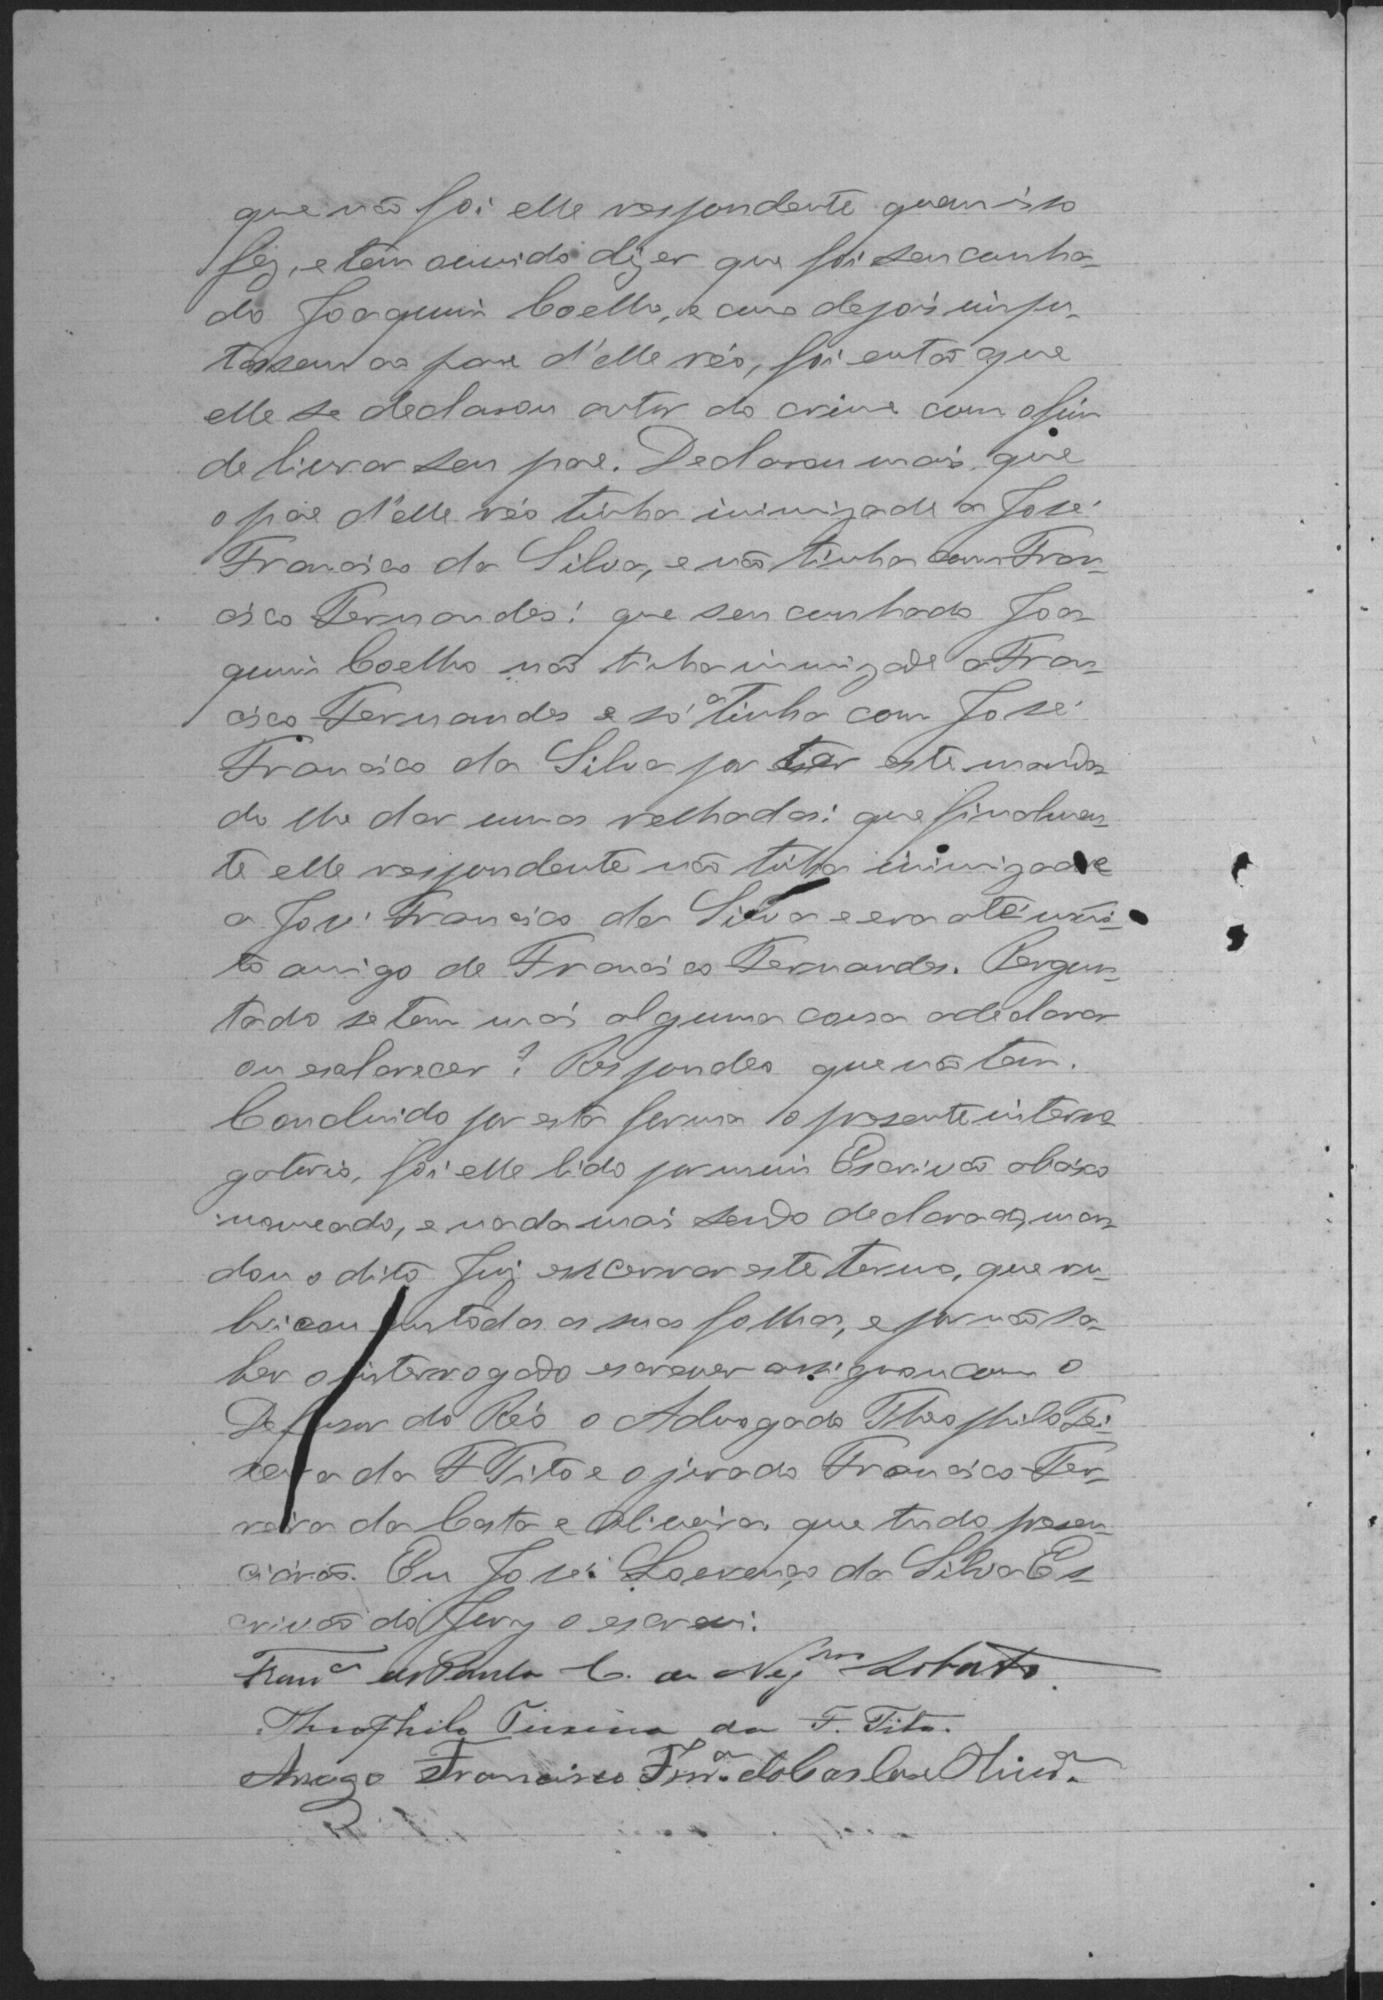 que não foi elle respondente quem isso
fez, e tem ouvido dizer que foi seu cunha-
do Joaquim Coelho, e como depois impu-
tassem ao pae d'elle réo, foi então que
elle se declarou autor do crime com o fim
de livrar seu pae. Declarou mais que
o pae d'elle réo tinha inimizade a José
Francisco da Silva, e não tinha com Fran-
cisco Fernandes: que seu cunhado Joa-
quim Coelho não tinha inimizade a Fran-
cisco Fernandes e só a tinha com José
Francisco da Silva por ter este manda-
do lhe dar umas relhadas: que finalmen-
te elle respondente não tinha inimizade
a José Francisco da Silva e era até mui-
to amigo de Francisco Fernandes. Pergun-
tado se tem mais alguma cousa a declarar
ou esclarecer? Respondeo que não tem.
Concluido por esta forma o presente interro-
gatorio, foi elle lido por mim Escrivão abaixo
nomeado, e nada mais sendo declarado, man-
dou o dito Juiz encerrar este termo, que ru-
bricou em todas as suas folhas, e por não sa-
ber o interrogado escrever assignou com o
Defensor do Réo o Advogado Theophilo Tei-
xeira da F Tito e o jurado Francisco Fer-
reira da Costa e Oliveira, que tudo presen-
ciárão. Eu José Lourenço da Silva Es-
crivão do Jury o escrevi.
Franco de Paula C. de Negros Lobato
Theophilo Teixeira da F. Tito.
Arago Francisco Fra. da Costa e Olivra.